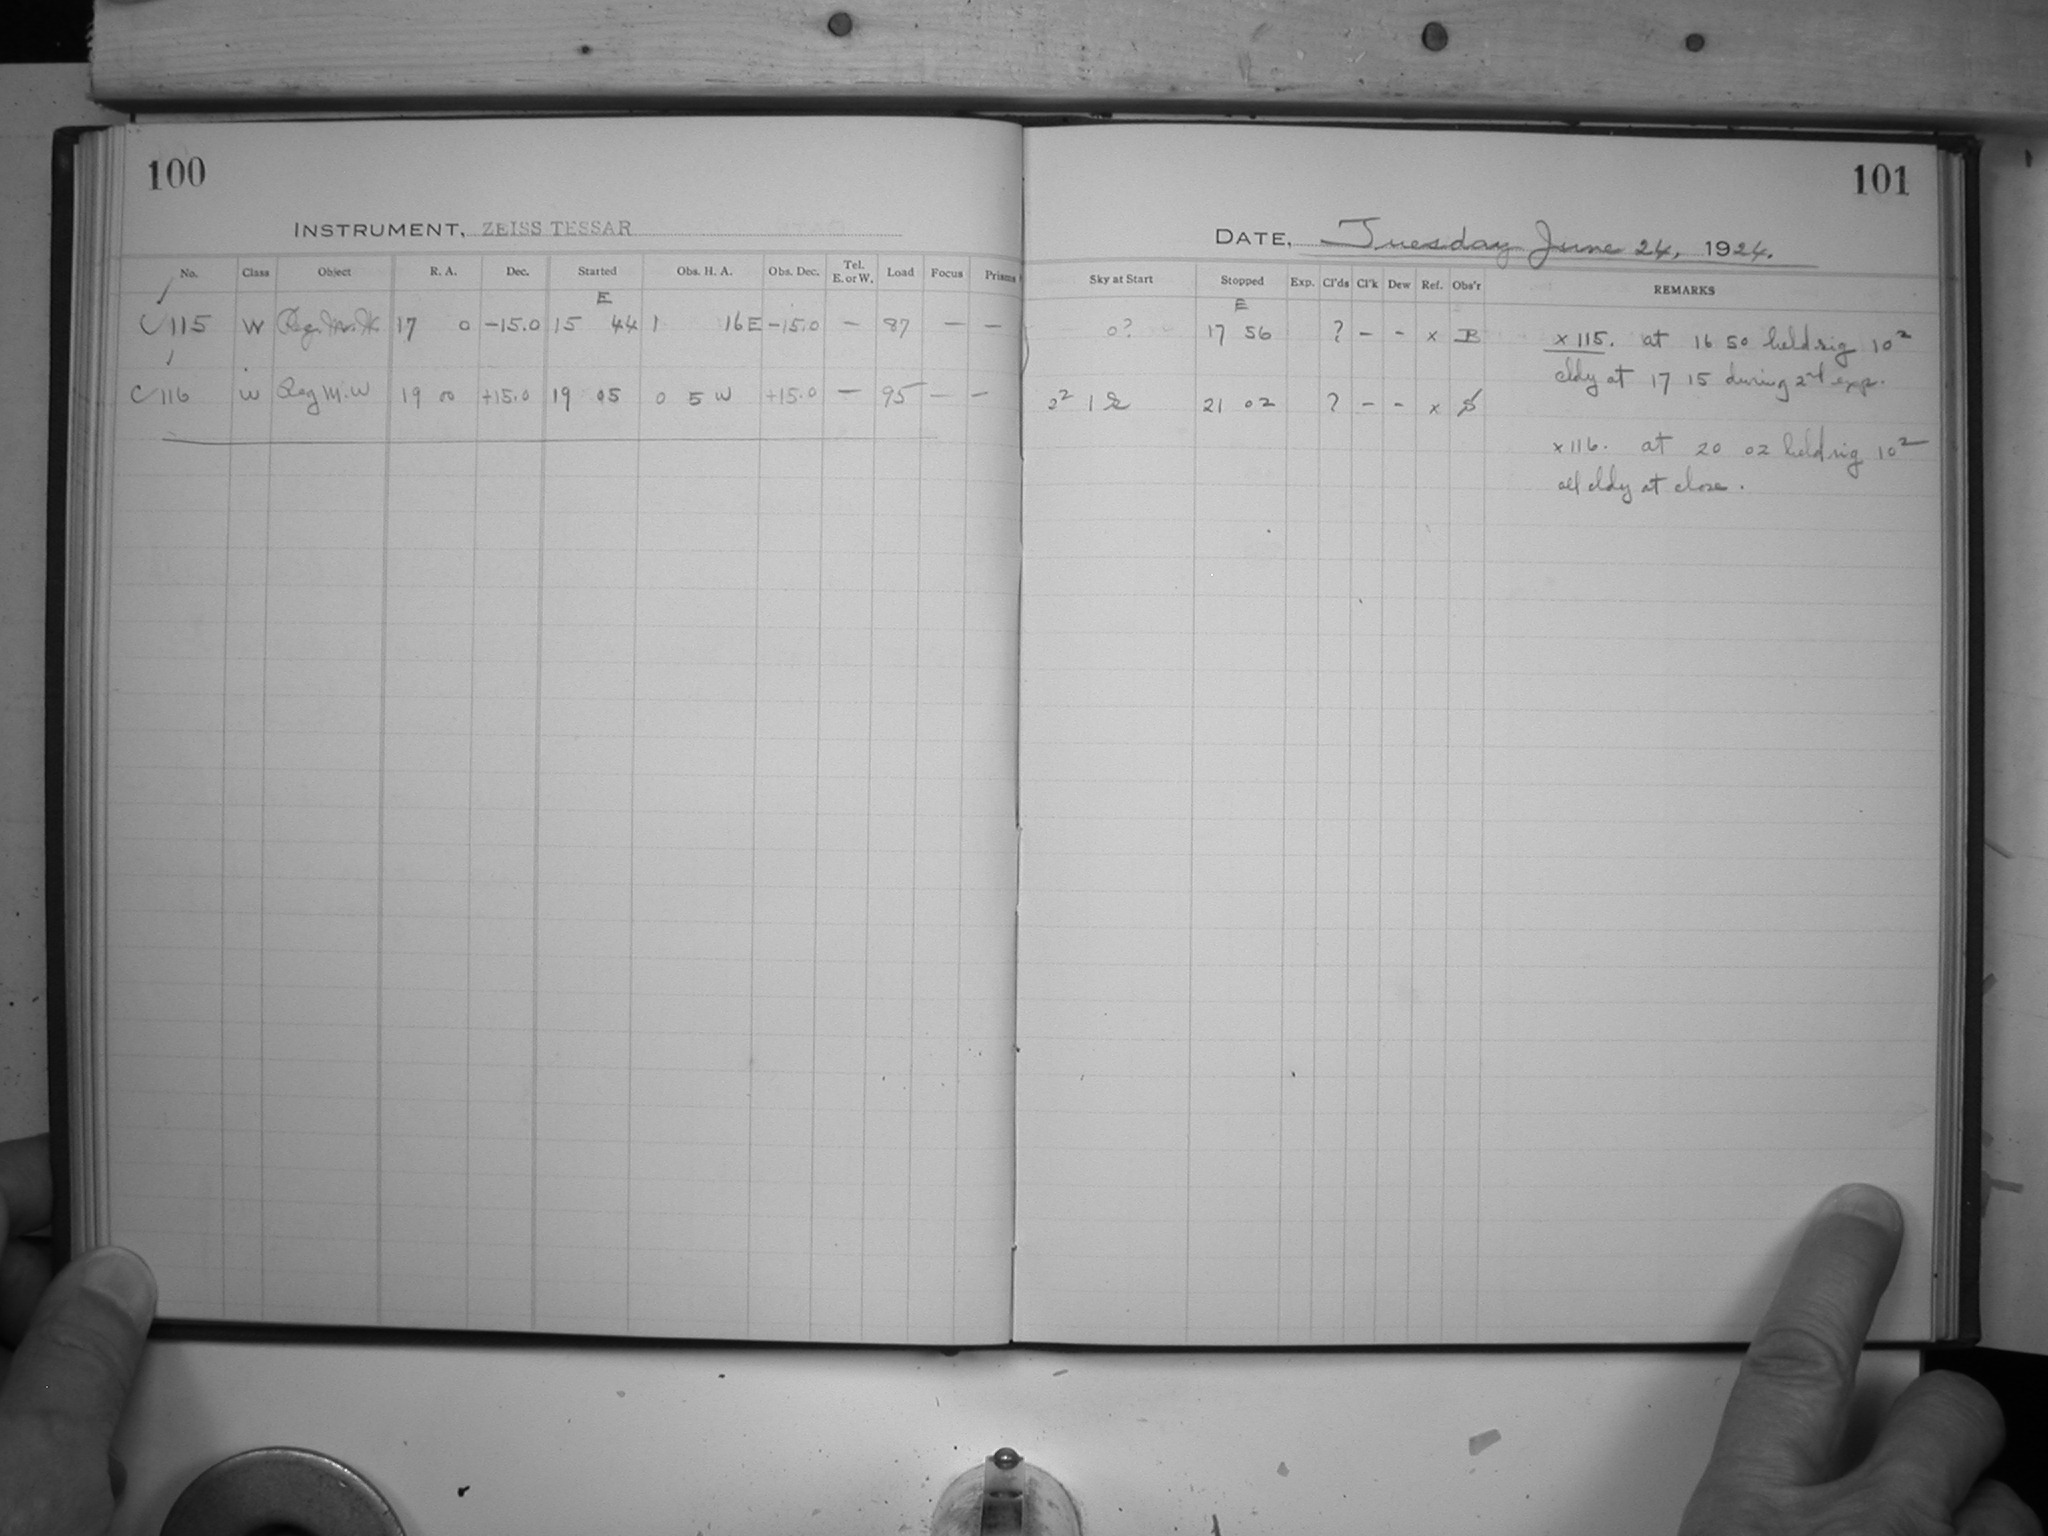 100
INSTRUMENT, ZEISS TESSAR
No. Class Object R. A. Dec. Started Obs. H. A. Obs. Dec. Tel. E. or W. Load Focus Prisms
E
C 115 W 17 0 -15.0 15 44 1 16 E -15.0 — 87 — —
C 116 W Reg M.W 19 00 +15.0 19 05 0 5 W +15.0 — 95 — —
101
DATE, Tuesday June 24, 1924.
Sky at Start Stopped Exp. Cl'ds Cl'k Dew Ref. Obs'r REMARKS
E
0? 17 56 ? - - x B
2² 1 21 02 ? - - x
x 115. at 16 50 held rig 10²
cldy at 17 15 during 2nd exp.
x 116. at 20 02 held rig 10²
all cldy at close.